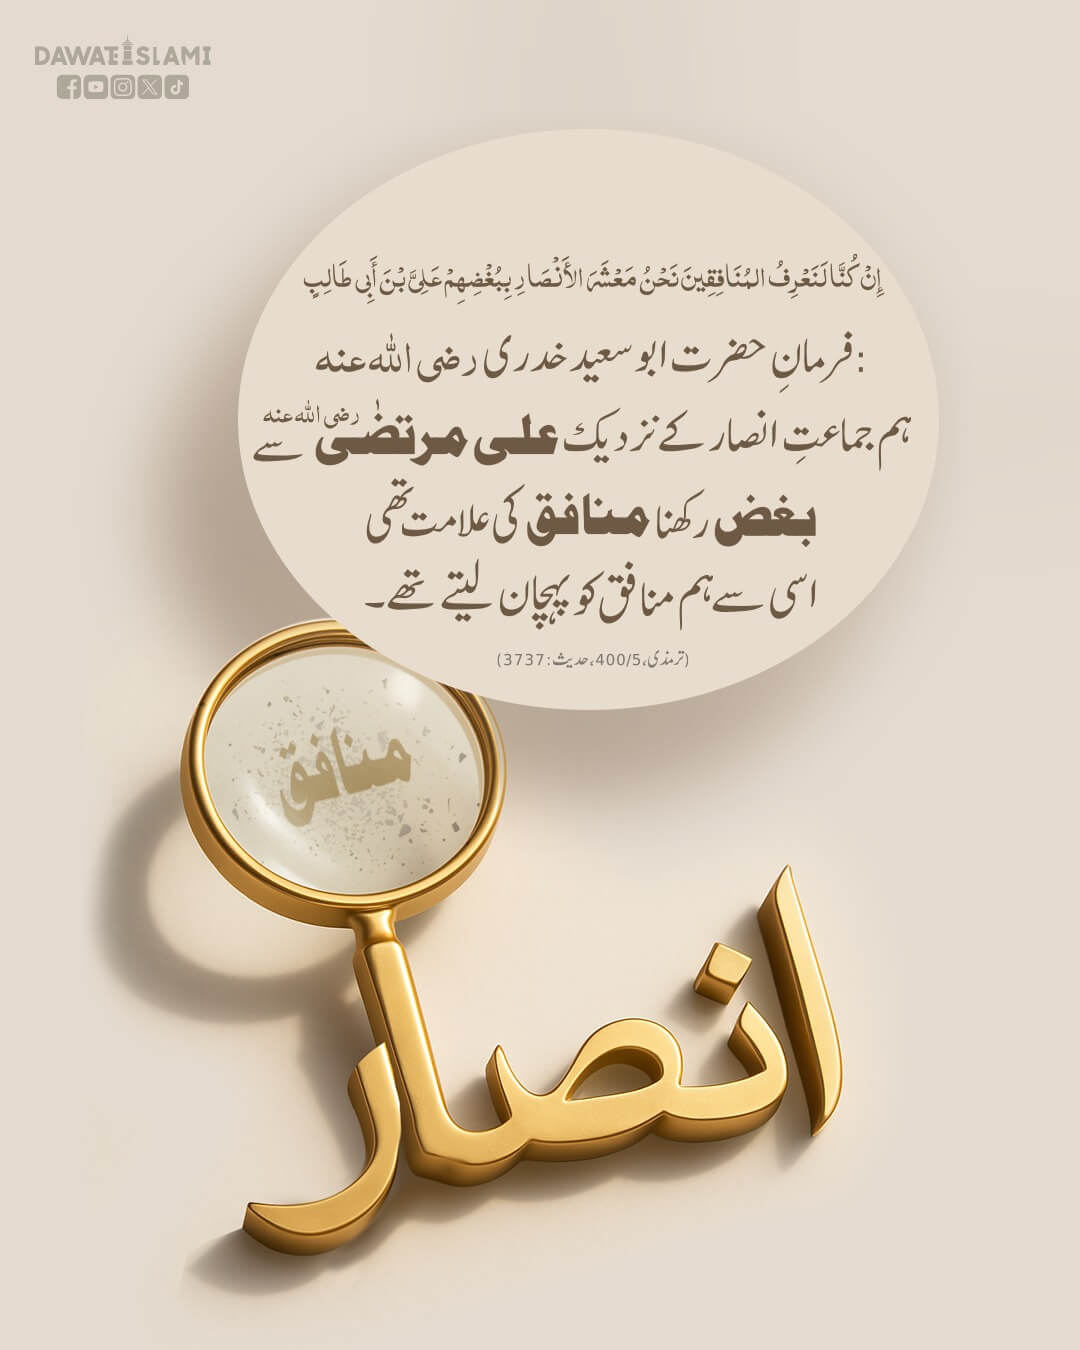 DAWATEISLAMI
إِنْ كُنَّا لَنَعْرِفُ المُنَافِقِينَ نَحْنُ مَعْشَرَ الأَنْصَارِ بِبُغْضِهِمْ عَلِيَّ بْنَ أَبِي طَالِبٍ
فرمانِ حضرت ابو سعید خدری رضی اللہ عنہ:
ہم جماعتِ انصار کے نزدیک علی مرتضٰی رضی اللہ عنہ سے
بغض رکھنا منافق کی علامت تھی
اسی سے ہم منافق کو پہچان لیتے تھے۔
(ترمذی،400/5،حدیث:3737)
منافق
انصار